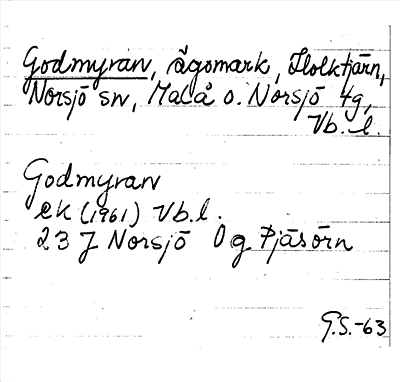 Godmyran, ägomark, Holktjärn,
Norsjö sn, Malå o. Norsjö tg,
Vb. l.
Godmyran
ek (1961) Vb. l.
23 J Norsjö 0 g Pjäsörn
G.S.-63